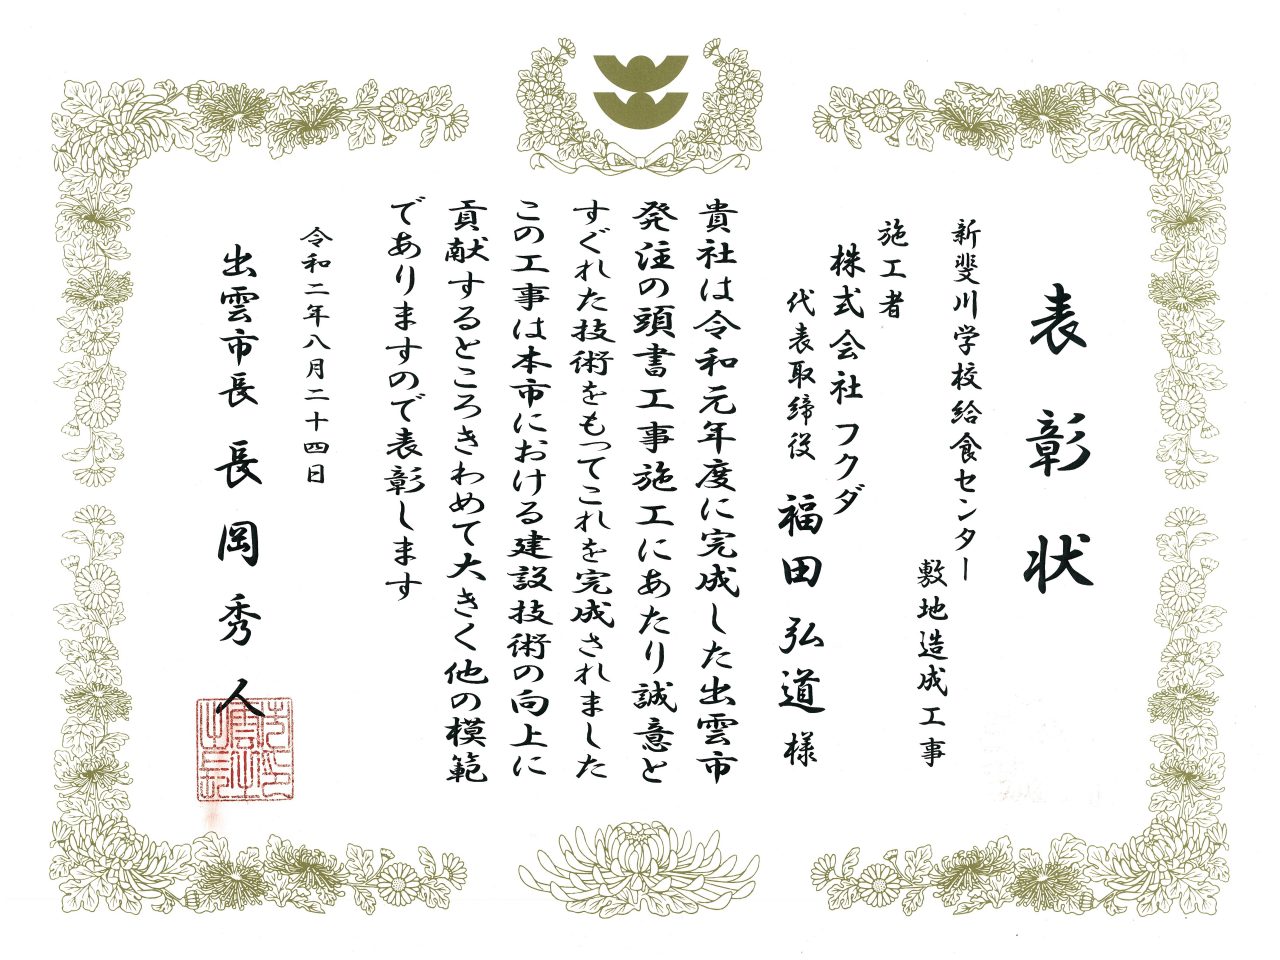 表彰状
新斐川学校給食センター
敷地造成工事
施工者
株式会社フクダ
代表取締役 福田弘道様
貴社は令和元年度に完成した出雲市
発注の頭書工事施工にあたり誠意と
すぐれた技術をもってこれを完成されました
この工事は本市における建設技術の向上に
貢献するところきわめて大きく他の模範
でありますので表彰します
令和二年八月二十四日
出雲市長 長岡秀人